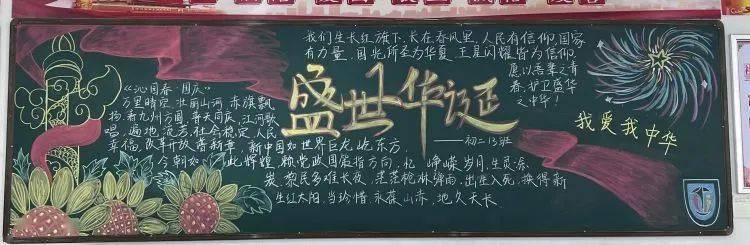 我们生长红旗下,长在春风里,人民有信仰,国家
有力量,目光所至为华夏,五星闪耀皆为信仰
愿以吾辈之青
春,护卫盛世
之中华!
盛世华诞
——初二13班
我爱我中华
《沁园春·国庆》
万里晴空,壮丽山河,赤旗飘
扬,看九州方圆,普天同庆,江河歌
唱,遍地流芳,社会稳定,人民
幸福,改革开放谱新章,新中国如世界巨龙屹东方,
今朝如此辉煌,赖党政国策指方向,忆峥嵘岁月,生灵涂
炭,黎民多难长夜,茫茫枪林弹雨,出生入死,换得新
生红太阳,当珍惜,永葆山赤,地久天长